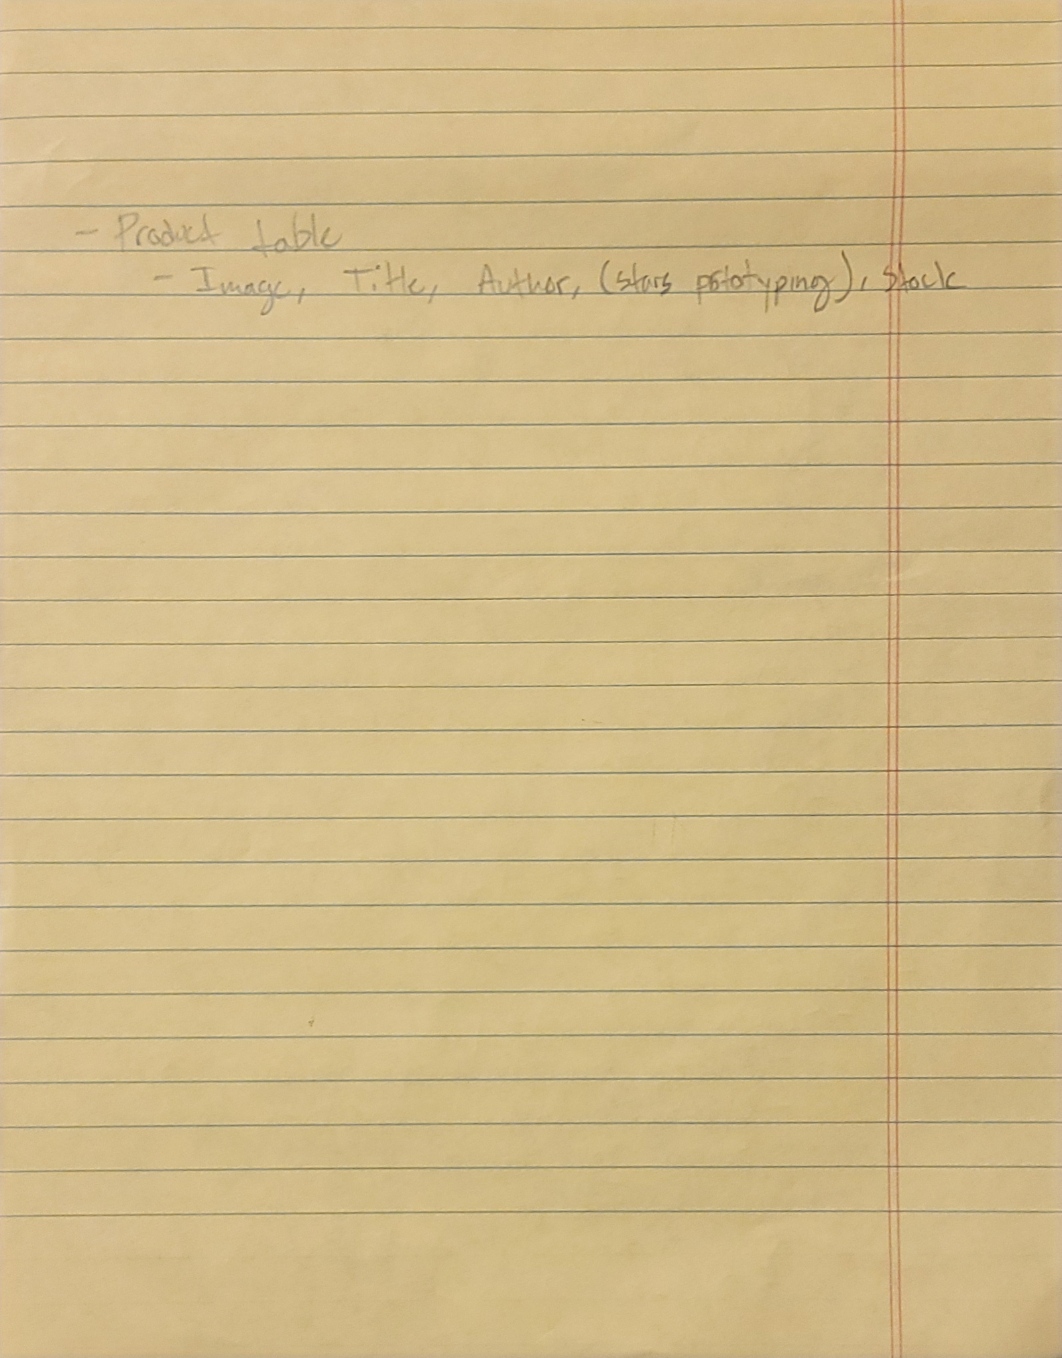 - Product table
- Image, Title, Author, (stars pototyping), Stock